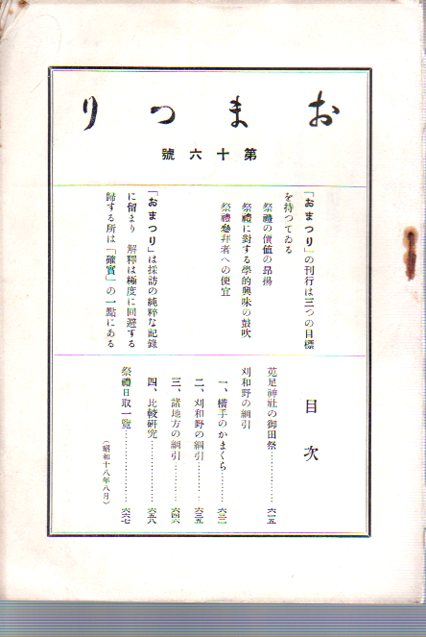 おまつり
第十六號
「おまつり」の刊行は三つの目標
を持つてゐる
祭禮の價値の昂揚
祭禮に對する學的興味の鼓吹
祭禮參拜者への便宜
「おまつり」は採訪の純粹な記錄
に留まり 解釋は極度に回避する
歸する所は「確實」の一點にある
目次
菟足神社の御田祭…………六一五
刈和野の綱引
一、橫手のかまくら…………六二一
二、刈和野の綱引…………六三五
三、諸地方の綱引…………六四六
四、比較研究…………六五八
祭禮日取一覽…………六六七
(昭和十八年八月)